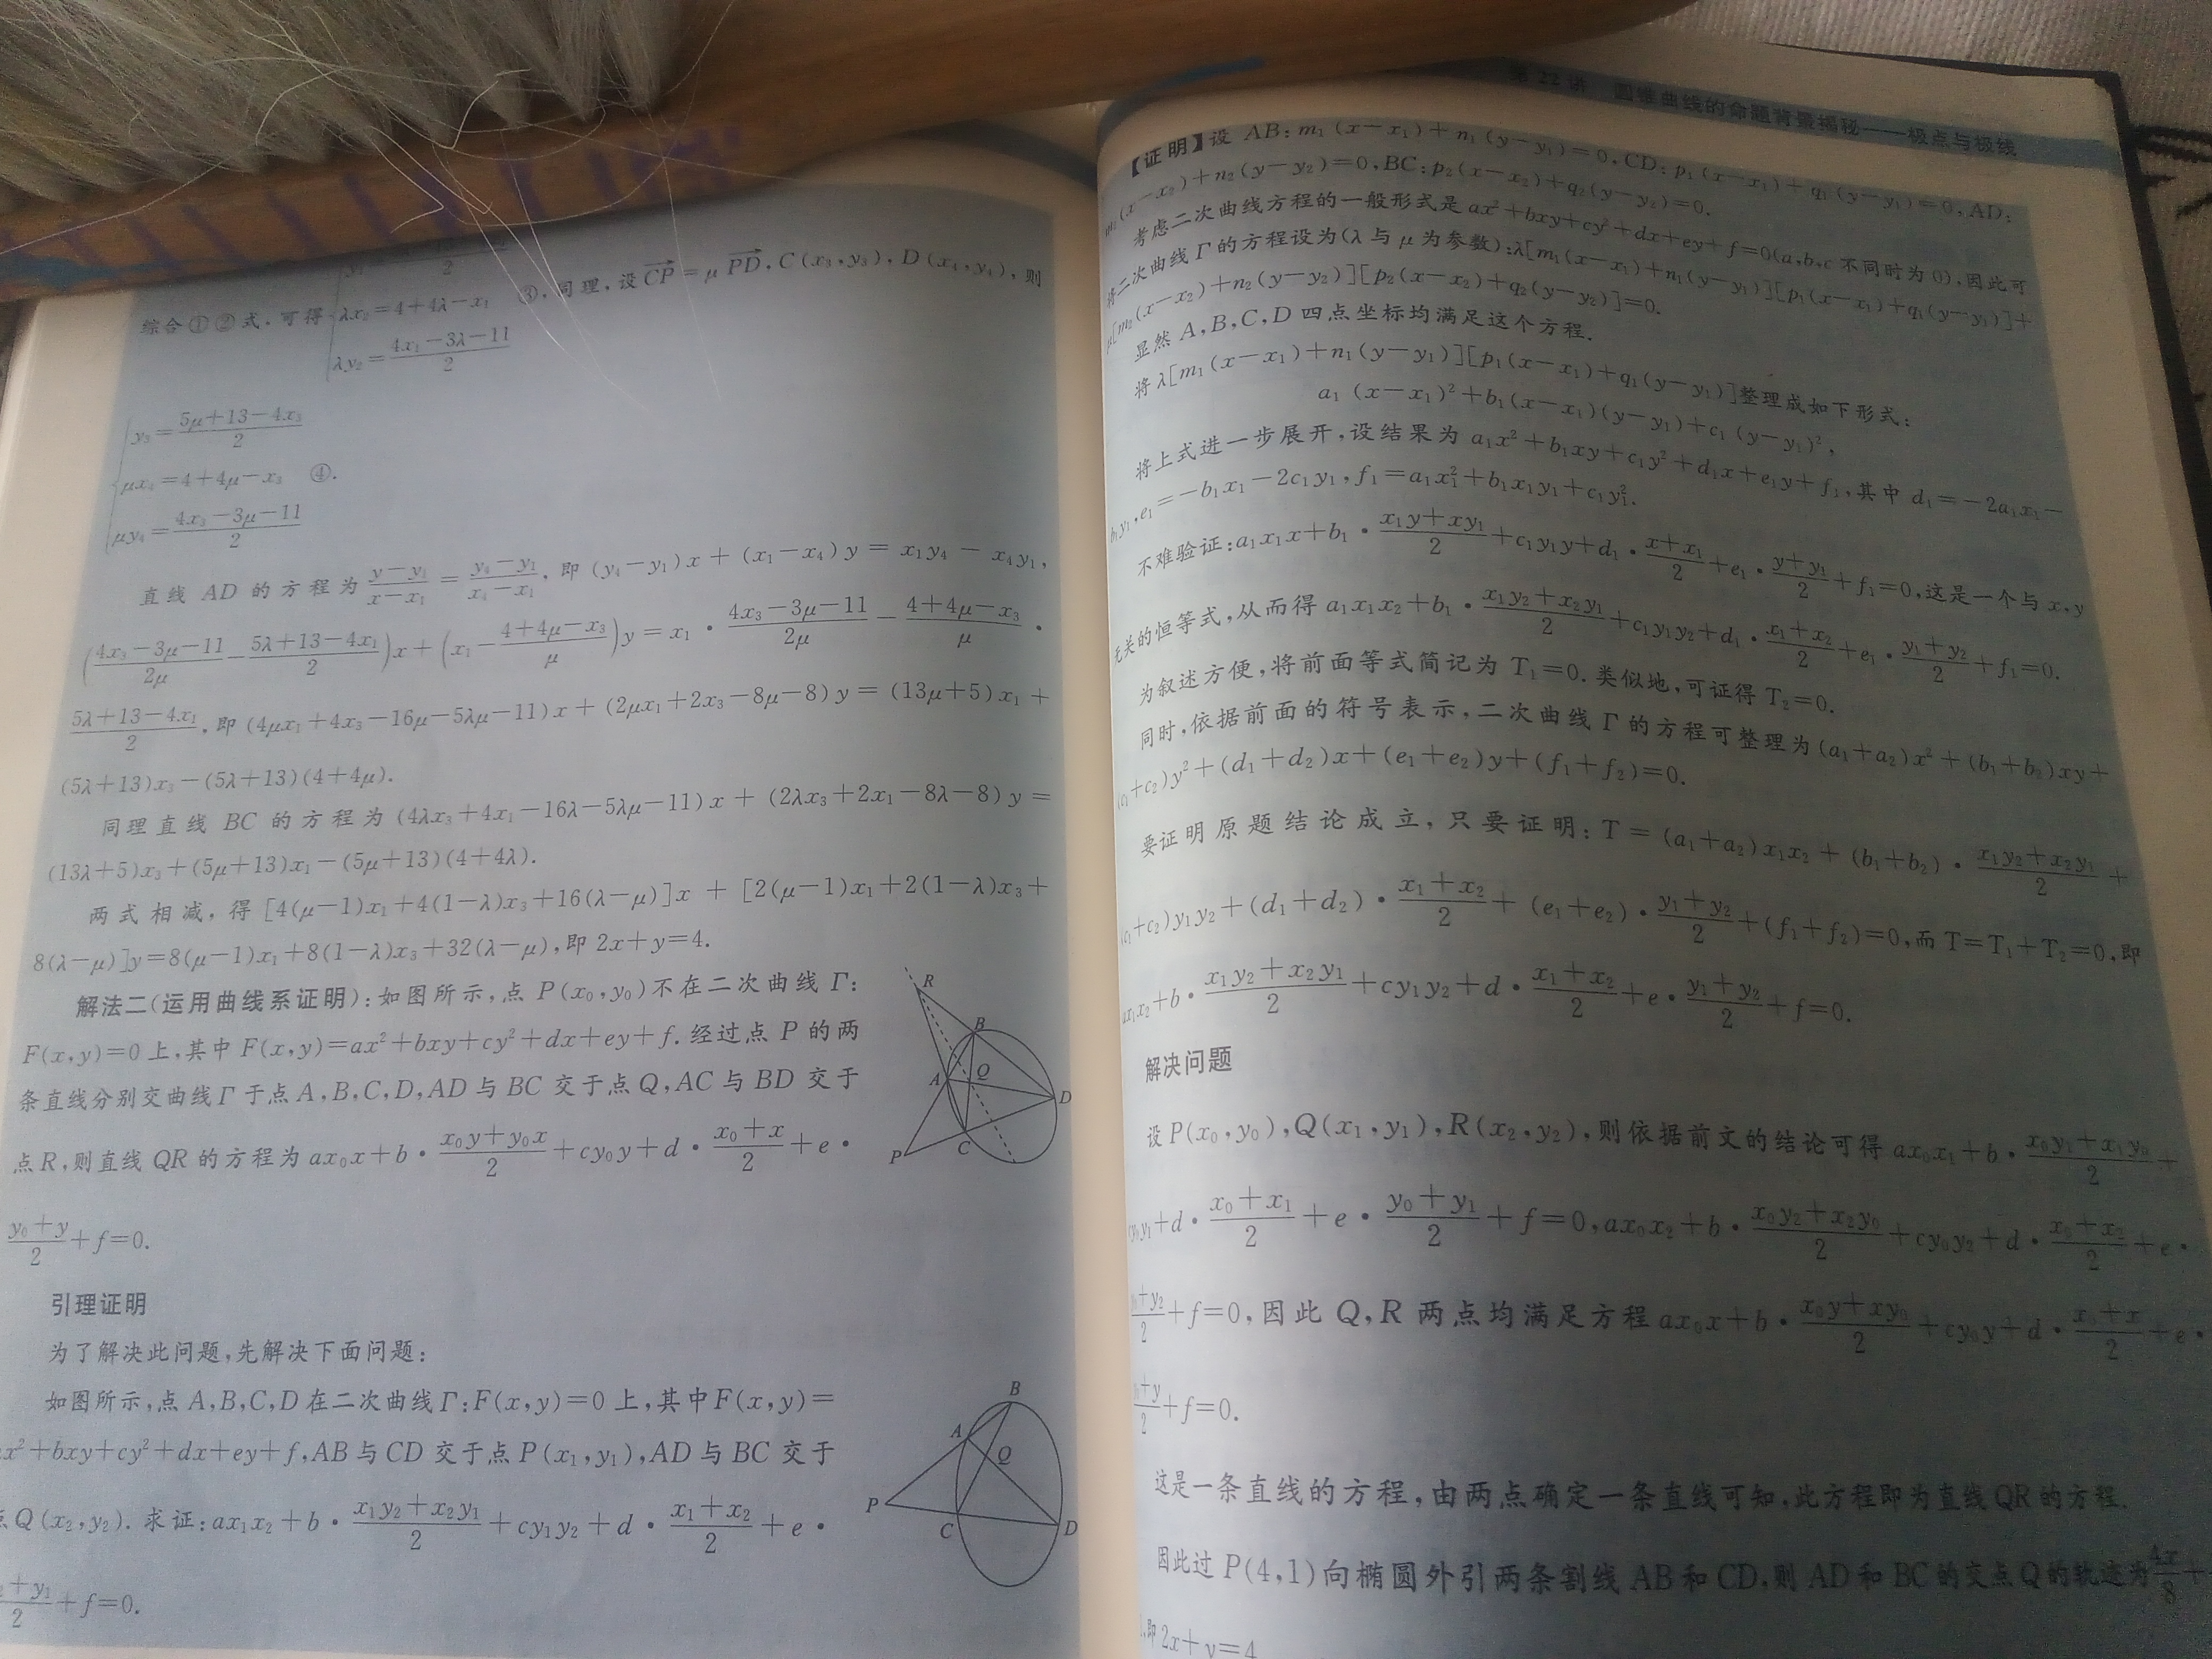 综合①②式,可得
2
λx₂=4+4λ-x₁ ③,同理,设 CP=μPD,C(x₃,y₃),D(x₄,y₄),则
λy₂=(4x₁-3λ-11)/2
y₃=(5μ+13-4x₃)/2
μx₄=4+4μ-x₃ ④.
μy₄=(4x₃-3μ-11)/2
直线 AD 的方程为 (y-y₁)/(x-x₁)=(y₄-y₁)/(x₄-x₁),即 (y₄-y₁)x+(x₁-x₄)y=x₁y₄-x₄y₁,
((4x₃-3μ-11)/2μ-(5λ+13-4x₁)/2)x+(x₁-(4+4μ-x₃)/μ)y=x₁·(4x₃-3μ-11)/2μ-(4+4μ-x₃)/μ·
(5λ+13-4x₁)/2,即 (4μx₁+4x₃-16μ-5λμ-11)x+(2μx₁+2x₃-8μ-8)y=(13μ+5)x₁+
(5λ+13)x₃-(5λ+13)(4+4μ).
同理直线 BC 的方程为 (4λx₃+4x₁-16λ-5λμ-11)x+(2λx₃+2x₁-8λ-8)y=
(13λ+5)x₃+(5μ+13)x₁-(5μ+13)(4+4λ).
两式相减,得[4(μ-1)x₁+4(1-λ)x₃+16(λ-μ)]x+[2(μ-1)x₁+2(1-λ)x₃+
8(λ-μ)]y=8(μ-1)x₁+8(1-λ)x₃+32(λ-μ),即 2x+y=4.
解法二(运用曲线系证明):如图所示,点 P(x₀,y₀)不在二次曲线 Γ:
F(x,y)=0 上,其中 F(x,y)=ax²+bxy+cy²+dx+ey+f.经过点 P 的两
条直线分别交曲线 Γ 于点 A,B,C,D,AD 与 BC 交于点 Q,AC 与 BD 交于
点 R,则直线 QR 的方程为 ax₀x+b·(x₀y+y₀x)/2+cy₀y+d·(x₀+x)/2+e·
(y₀+y)/2+f=0.
R
B
A
Q
D
C
P
引理证明
为了解决此问题,先解决下面问题:
如图所示,点 A,B,C,D 在二次曲线 Γ:F(x,y)=0 上,其中 F(x,y)=
x²+bxy+cy²+dx+ey+f,AB 与 CD 交于点 P(x₁,y₁),AD 与 BC 交于
点 Q(x₂,y₂).求证:ax₁x₂+b·(x₁y₂+x₂y₁)/2+cy₁y₂+d·(x₁+x₂)/2+e·
+y₁/2+f=0.
B
A
Q
P
C
D
第 22 讲 圆锥曲线的命题背景揭秘——极点与极线
【证明】设 AB:m₁(x-x₁)+n₁(y-y₁)=0,CD:p₁(x-x₁)+q₁(y-y₁)=0,AD:
m₂(x-x₂)+n₂(y-y₂)=0,BC:p₂(x-x₂)+q₂(y-y₂)=0.
考虑二次曲线方程的一般形式是 ax²+bxy+cy²+dx+ey+f=0(a,b,c 不同时为 0),因此可
将二次曲线 Γ 的方程设为(λ 与 μ 为参数):λ[m₁(x-x₁)+n₁(y-y₁)][p₁(x-x₁)+q₁(y-y₁)]+
μ[m₂(x-x₂)+n₂(y-y₂)][p₂(x-x₂)+q₂(y-y₂)]=0.
显然 A,B,C,D 四点坐标均满足这个方程.
将 λ[m₁(x-x₁)+n₁(y-y₁)][p₁(x-x₁)+q₁(y-y₁)]整理成如下形式:
a₁(x-x₁)²+b₁(x-x₁)(y-y₁)+c₁(y-y₁)²,
将上式进一步展开,设结果为 a₁x²+b₁xy+c₁y²+d₁x+e₁y+f₁,其中 d₁=-2a₁x₁-
b₁y₁,e₁=-b₁x₁-2c₁y₁,f₁=a₁x₁²+b₁x₁y₁+c₁y₁².
不难验证:a₁x₁x+b₁·(x₁y+xy₁)/2+c₁y₁y+d₁·(x+x₁)/2+e₁·(y+y₁)/2+f₁=0,这是一个与 x,y
无关的恒等式,从而得 a₁x₁x₂+b₁·(x₁y₂+x₂y₁)/2+c₁y₁y₂+d₁·(x₁+x₂)/2+e₁·(y₁+y₂)/2+f₁=0.
为叙述方便,将前面等式简记为 T₁=0.类似地,可证得 T₂=0.
同时,依据前面的符号表示,二次曲线 Γ 的方程可整理为 (a₁+a₂)x²+(b₁+b₂)xy+
(c₁+c₂)y²+(d₁+d₂)x+(e₁+e₂)y+(f₁+f₂)=0.
要证明原题结论成立,只要证明:T=(a₁+a₂)x₁x₂+(b₁+b₂)·(x₁y₂+x₂y₁)/2+
(c₁+c₂)y₁y₂+(d₁+d₂)·(x₁+x₂)/2+(e₁+e₂)·(y₁+y₂)/2+(f₁+f₂)=0,而 T=T₁+T₂=0,即
ax₁x₂+b·(x₁y₂+x₂y₁)/2+cy₁y₂+d·(x₁+x₂)/2+e·(y₁+y₂)/2+f=0.
解决问题
设 P(x₀,y₀),Q(x₁,y₁),R(x₂,y₂),则依据前文的结论可得 ax₀x₁+b·(x₀y₁+x₁y₀)/2+
y₁+d·(x₀+x₁)/2+e·(y₀+y₁)/2+f=0,ax₀x₂+b·(x₀y₂+x₂y₀)/2+cy₀y₂+d·(x₀+x₂)/2+e·
+y₂/2+f=0,因此 Q,R 两点均满足方程 ax₀x+b·(x₀y+xy₀)/2+cy₀y+d·(x₀+x)/2+e·
+y/2+f=0.
这是一条直线的方程,由两点确定一条直线可知,此方程即为直线 QR 的方程.
因此过 P(4,1)向椭圆外引两条割线 AB 和 CD,则 AD 和 BC 的交点 Q 的轨迹为 4x/8+
,即 2x+y=4